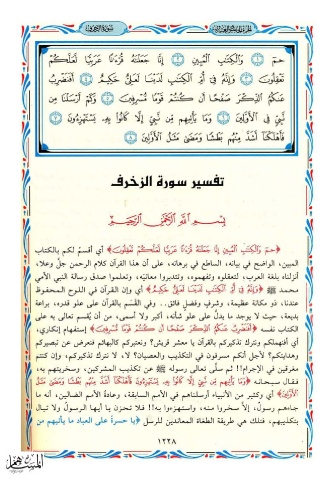 سورة الزخرف
حمٓ ۝١ وَالْكِتَابِ الْمُبِينِ ۝٢ إِنَّا جَعَلْنَاهُ قُرْءَانًا عَرَبِيًّا لَعَلَّكُمْ
تَعْقِلُونَ ۝٣ وَإِنَّهُ فِي أُمِّ الْكِتَابِ لَدَيْنَا لَعَلِيٌّ حَكِيمٌ ۝٤ أَفَنَضْرِبُ
عَنكُمُ الذِّكْرَ صَفْحًا أَن كُنتُمْ قَوْمًا مُّسْرِفِينَ ۝٥ وَكَمْ أَرْسَلْنَا مِن
نَّبِيٍّ فِي الْأَوَّلِينَ ۝٦ وَمَا يَأْتِيهِم مِّن نَّبِيٍّ إِلَّا كَانُوا بِهِ يَسْتَهْزِءُونَ ۝٧
فَأَهْلَكْنَا أَشَدَّ مِنْهُم بَطْشًا وَمَضَىٰ مَثَلُ الْأَوَّلِينَ ۝٨
تفسير سورة الزخرف
بسم الله الرحمن الرحيم
﴿حمٓ وَالْكِتَابِ الْمُبِينِ إِنَّا جَعَلْنَاهُ قُرْءَانًا عَرَبِيًّا لَعَلَّكُمْ تَعْقِلُونَ﴾ أي أقسم لكم بالكتاب
المبين، الواضح في بيانه، الساطع في برهانه، على أن هذا القرآن كلام الرحمن جل وعلا،
أنزلناه بلغة العرب، لتعقلوه وتفهموه، وتتدبروا معانيه، وتعلموا صدق رسالة النبي الأمي
محمد ﷺ ﴿وَإِنَّهُ فِي أُمِّ الْكِتَابِ لَدَيْنَا لَعَلِيٌّ حَكِيمٌ﴾ أي وإن القرآن في اللوح المحفوظ
عندنا، ذو مكانة عظيمة، وشرف وفضل فائق.. وفي القسم بالقرآن على علو قدره، براعة
بديعة، حيث لا يوجد ما يدل على علو شأنه، أكبر ولا أسمى، من أن يقسم تعالى به على
الكتاب نفسه ﴿أَفَنَضْرِبُ عَنكُمُ الذِّكْرَ صَفْحًا أَن كُنتُمْ قَوْمًا مُّسْرِفِينَ﴾ إستفهام إنكاري،
أي أفنهملكم ونترك تذكيركم بالقرآن يا معشر قريش؟ ونعتبركم كالبهائم فنعرض عن تبصيركم
وهدايتكم؟ لأجل أنكم مسرفون في التكذيب والعصيان؟ لا، لا نترك تذكيركم، وإن كنتم
مغرقين في الإجرام!! ثم سلّى تعالى رسوله ﷺ عن تكذيب المشركين، وسخريتهم به،
فقال سبحانه ﴿وَمَا يَأْتِيهِم مِّن نَّبِيٍّ إِلَّا كَانُوا بِهِ يَسْتَهْزِءُونَ فَأَهْلَكْنَا أَشَدَّ مِنْهُم بَطْشًا وَمَضَىٰ مَثَلُ
الْأَوَّلِينَ﴾ أي وكثير من الأنبياء أرسلناهم في الأمم السابقة، وعادة الأمم الضالين، أنه ما
جاءهم رسول، إلا سخروا منه، واستهزءوا به!! فلا تحزن يا أيها الرسول ولا تبال
بتكذيبهم، فتلك هي طريقة الطغاة المعاندين للرسل ﴿يا حسرةً على العباد ما يأتيهم من
١٢٢٨